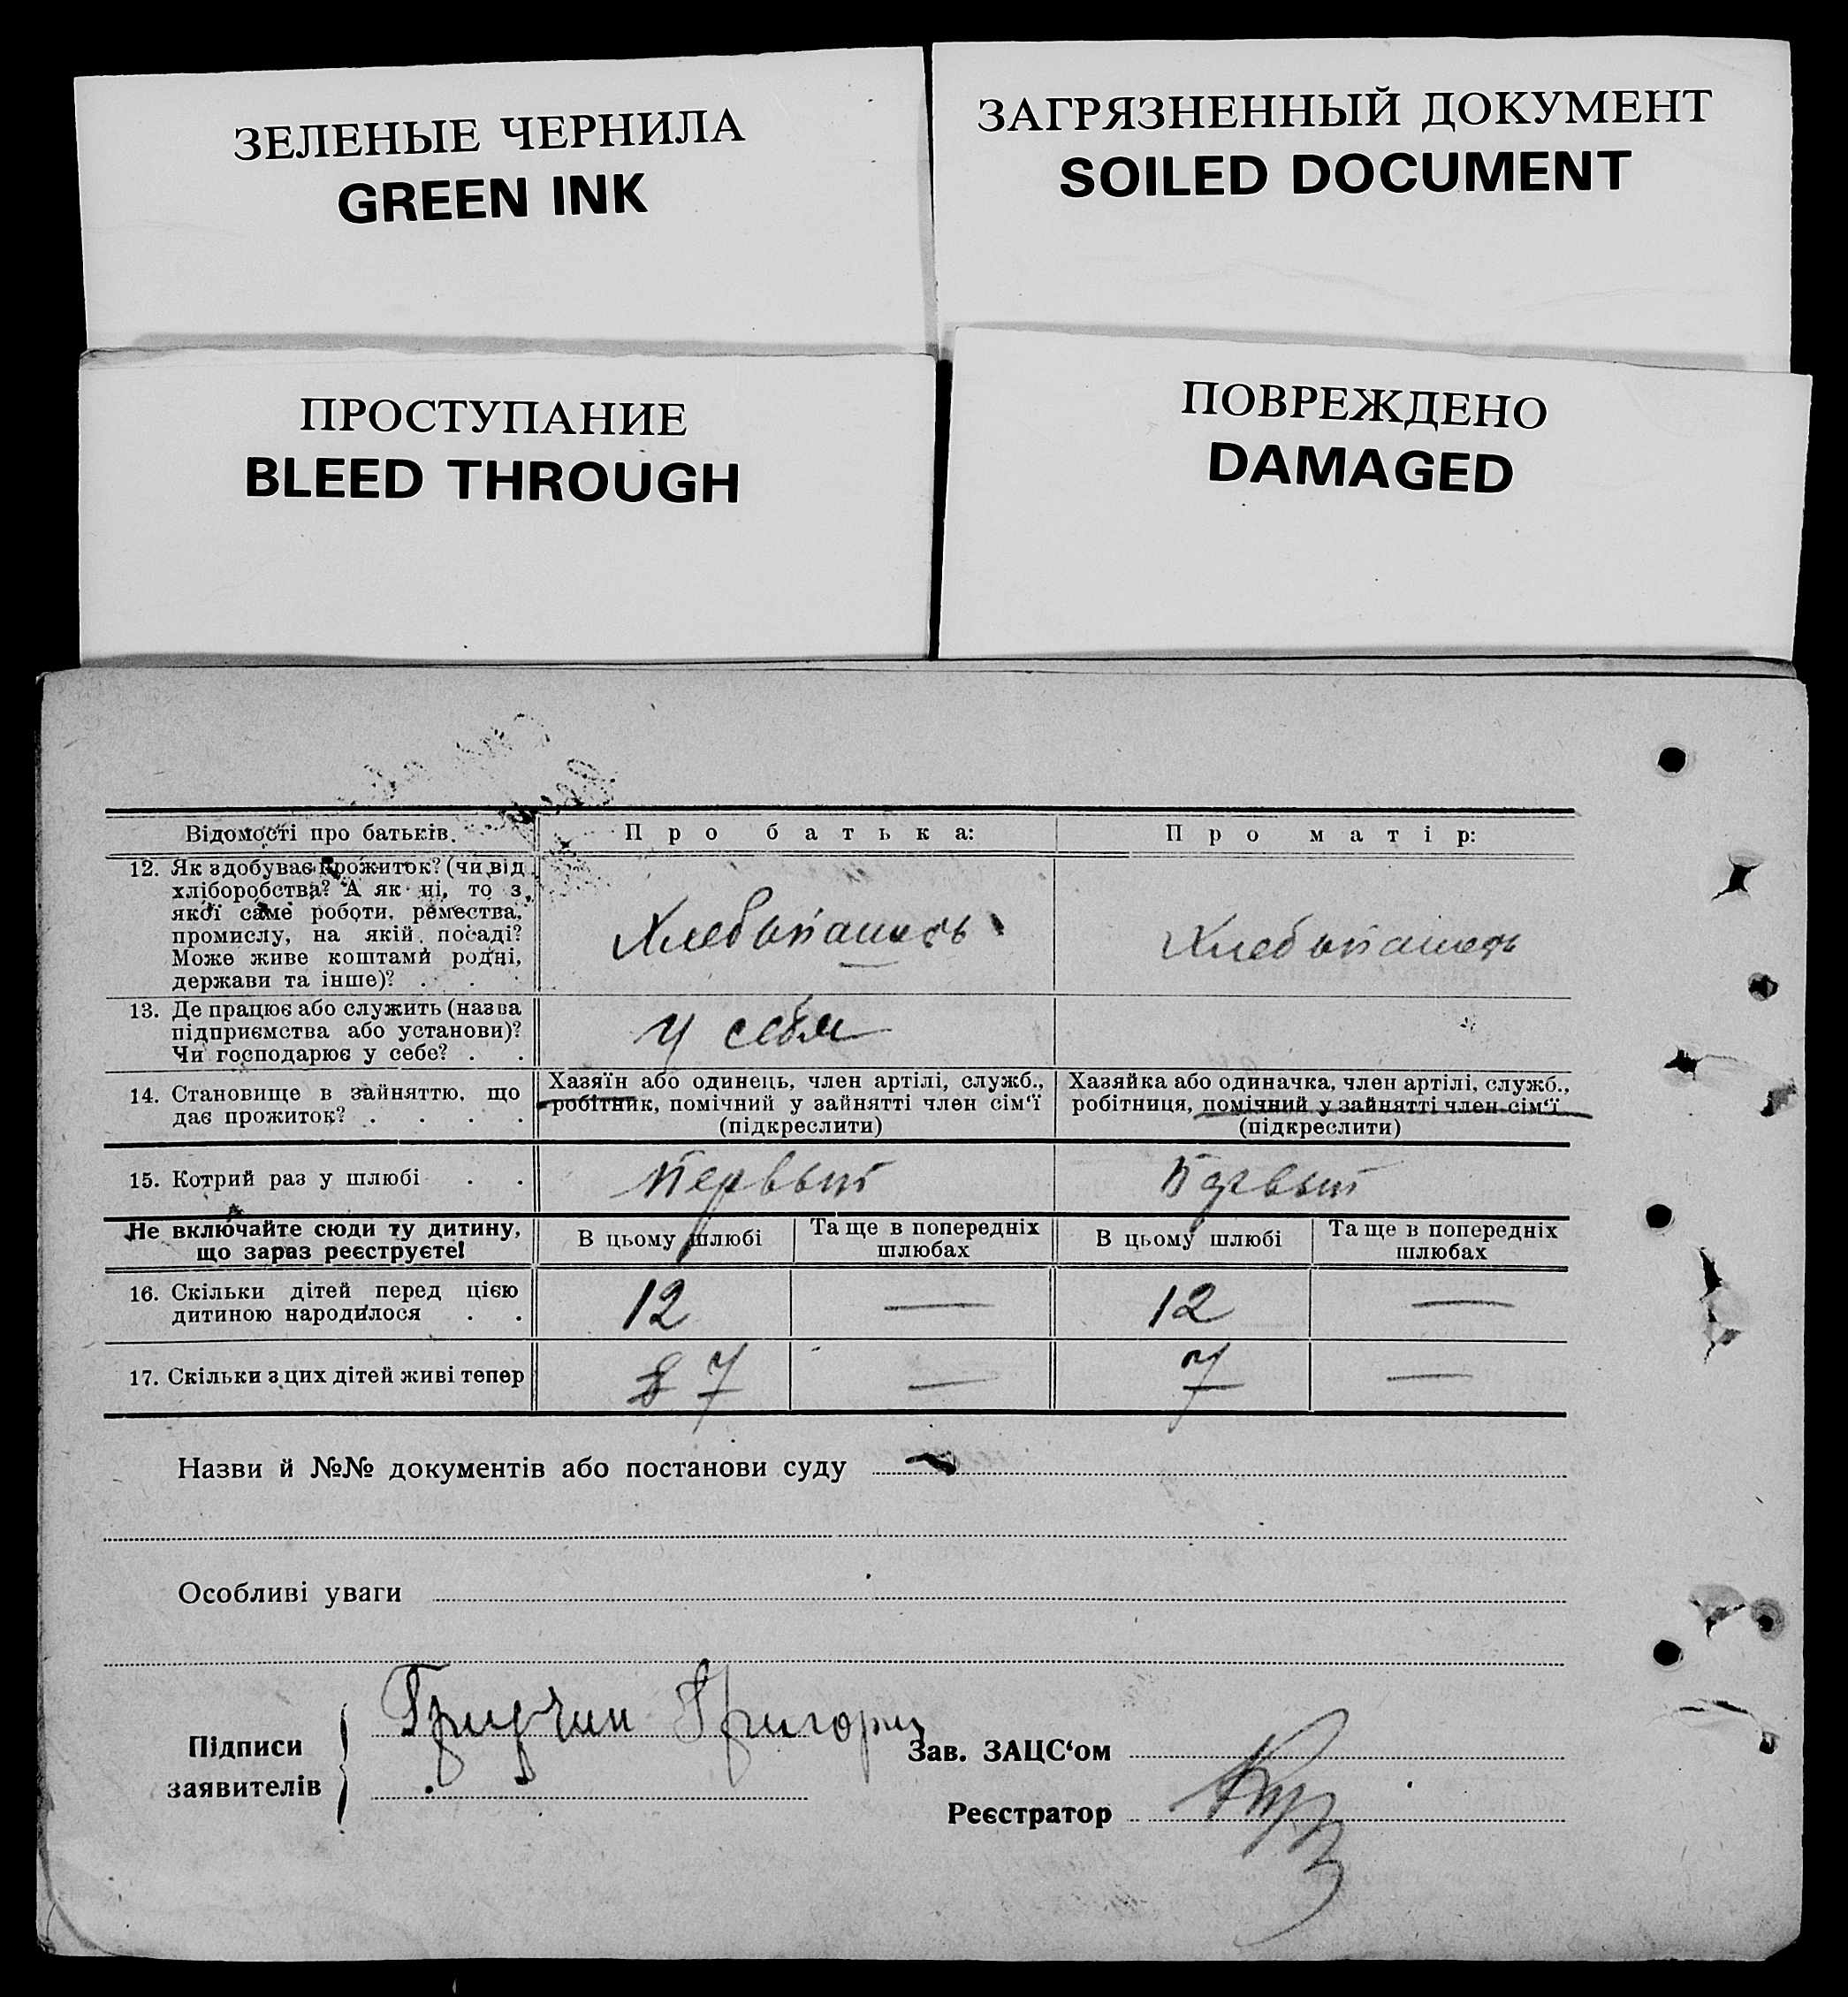 ЗЕЛЕНЫЕ ЧЕРНИЛА
GREEN INK
ЗАГРЯЗНЕННЫЙ ДОКУМЕНТ
SOILED DOCUMENT
ПРОСТУПАНИЕ
BLEED THROUGH
ПОВРЕЖДЕНО
DAMAGED
Відомості про батьків.
Про батька:
Про матір:
12. Як здобуває прожиток? (чи від
хліборобства? А як ні, то з
якої саме роботи, ремества,
промислу, на якій посаді?
Може живе коштами родні,
держави та інше)? . .
Хлебопашець
Хлебопашець
13. Де працює або служить (назва
підприємства або установи)?
Чи господарює у себе? . .
У себя
14. Становище в зайняттю, що
дає прожиток? . . . .
Хазяїн або одинець, член артілі, служб.,
робітник, помічний у зайнятті член сім‘ї
(підкреслити)
Хазяйка або одиначка, член артілі, служб.,
робітниця, помічний у зайнятті член сім‘ї
(підкреслити)
15. Котрий раз у шлюбі . .
Первый
Первый
Не включайте сюди ту дитину,
що зараз реєструєте!
В цьому шлюбі
Та ще в попередніх
шлюбах
В цьому шлюбі
Та ще в попередніх
шлюбах
16. Скільки дітей перед цією
дитиною народилося . .
12
—
12
—
17. Скільки з цих дітей живі тепер
8 7
—
7
—
Назви й №№ документів або постанови суду
Особливі уваги
Підписи
заявителів
Григорий
Зав. ЗАЦС‘ом
Реєстратор